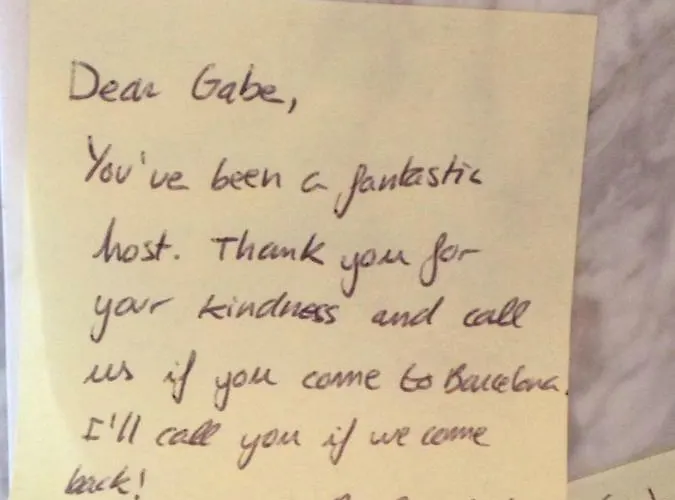 Dear Gabe,
You've been a fantastic
host. Thank you for
your kindness and call
us if you come to Barcelona.
I'll call you if we come
back!